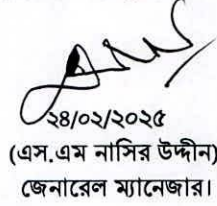 ২৪/০২/২০২৫
(এস.এম নাসির উদ্দীন)
জেনারেল ম্যানেজার।